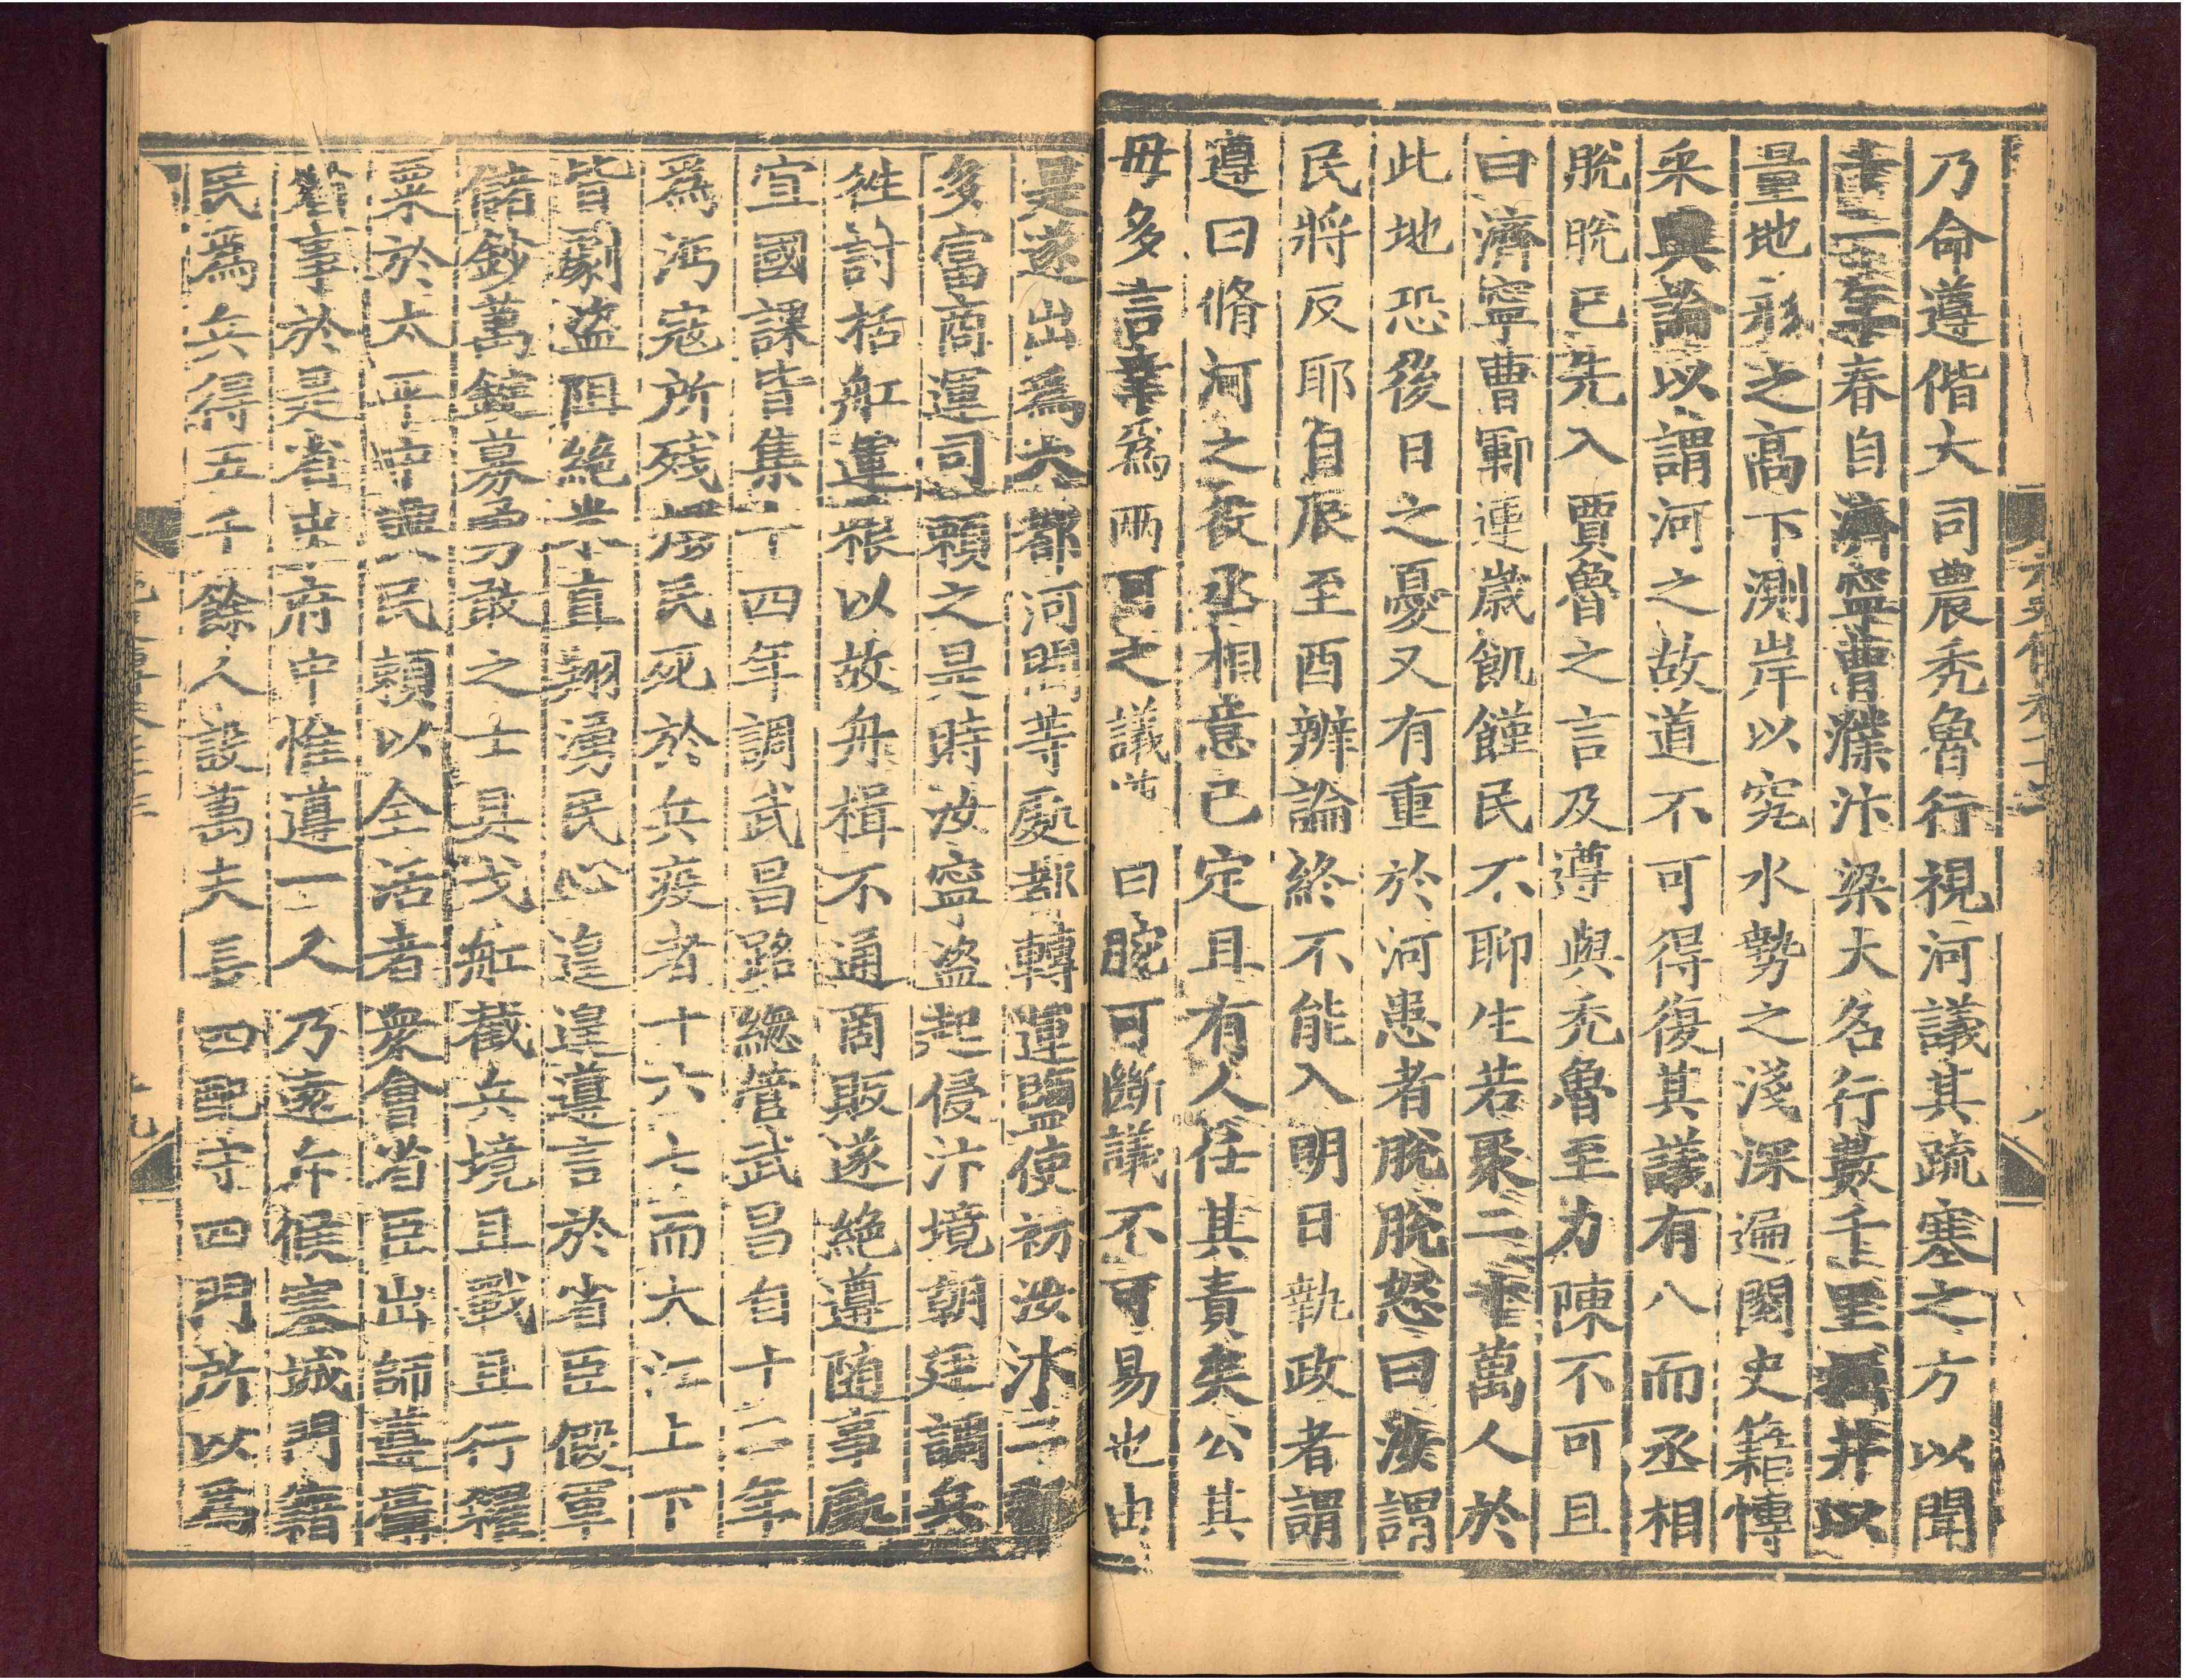 乃命遵偕大司農禿魯行視河議其疏塞之方以聞
春自濟寧曹濮汴梁大名行數千里掘井以
量地形之高下測岸以究水勢之淺深遍閱史籍博
采輿論以謂河之故道不可得復其議有八而丞相
脫脫已先入賈魯之言及遵與禿魯至力陳不可且
曰濟寧曹鄆連歲飢饉民不聊生若聚二十萬人於
此地恐後日之憂又有重於河患者脫脫怒曰汝謂
民將反耶自辰至酉辨論終不能入明日執政者謂
遵曰脩河之役丞相意已定且有人任其責矣公其
毋多言幸爲兩可之議遵曰腕可斷議不可易也由
是遂出爲大都河間等處都轉運鹽使初汝汴二郡
多富商運司賴之是時汝寧盜起侵汴境朝廷調兵
徃討括舡運粮以故舟楫不通商販遂絶遵隨事處
宜國課皆集十四年調武昌路總管武昌自十二年
爲沔寇所残燬民死於兵疫者十六七而大江上下
皆劇盜阻絶米直翔湧民心遑遑遵言於省臣假軍
儲鈔萬錠募勇敢之士具戈舡截兵境且戰且行糴
粟於太平中興民賴以全活者衆會省臣出師遵攝
省事於是省出府中惟遵一人乃遠斥候塞城門籍
民爲兵得五千餘人設萬夫長四配守四門所以爲